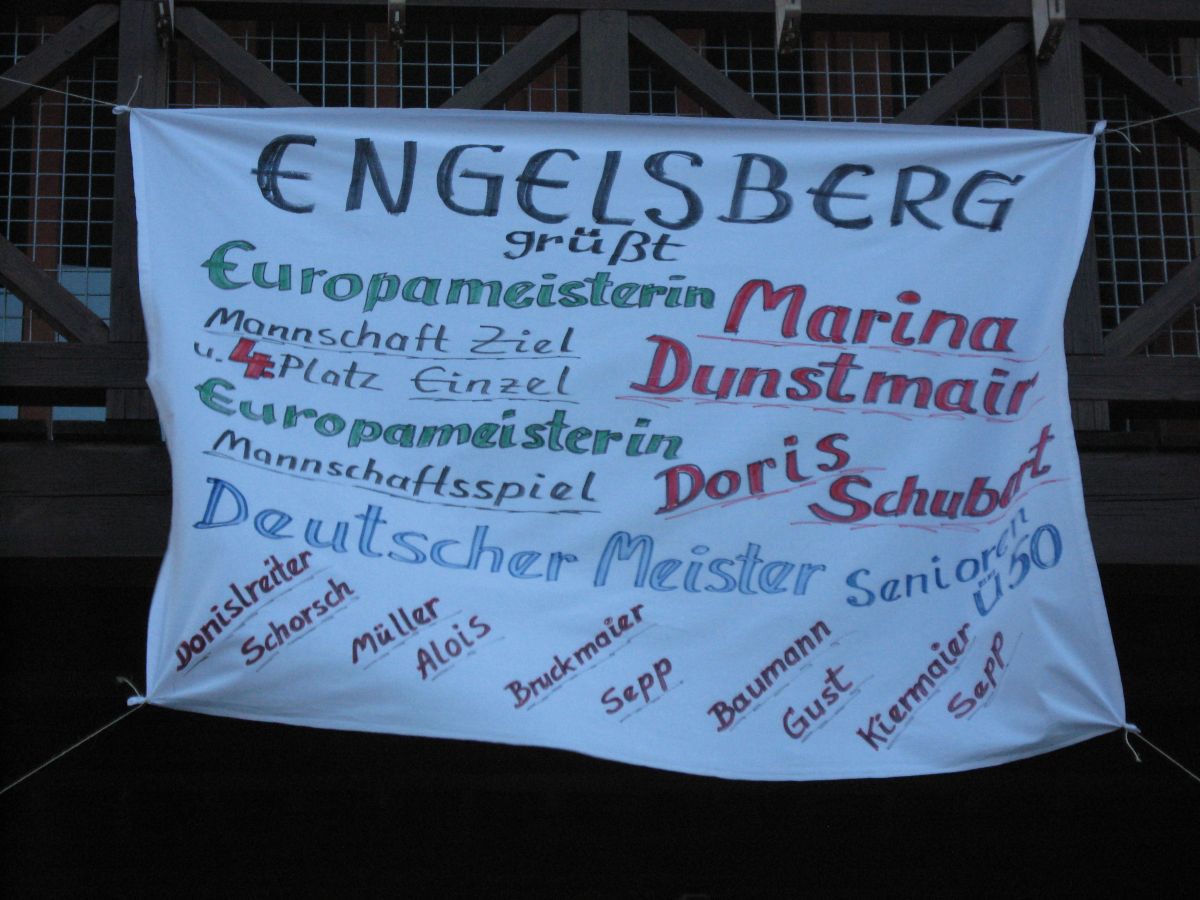 ENGELSBERG
grüßt
Europameisterin Marina
Mannschaft Ziel
u. 4. Platz Einzel Dunstmair
Europameisterin
Mannschaftsspiel Doris
Schubert
Deutscher Meister Senioren
ü50
Donislreiter
Schorsch
Müller
Alois
Bruckmaier
Sepp
Baumann
Gust
Kiermaier
Sepp